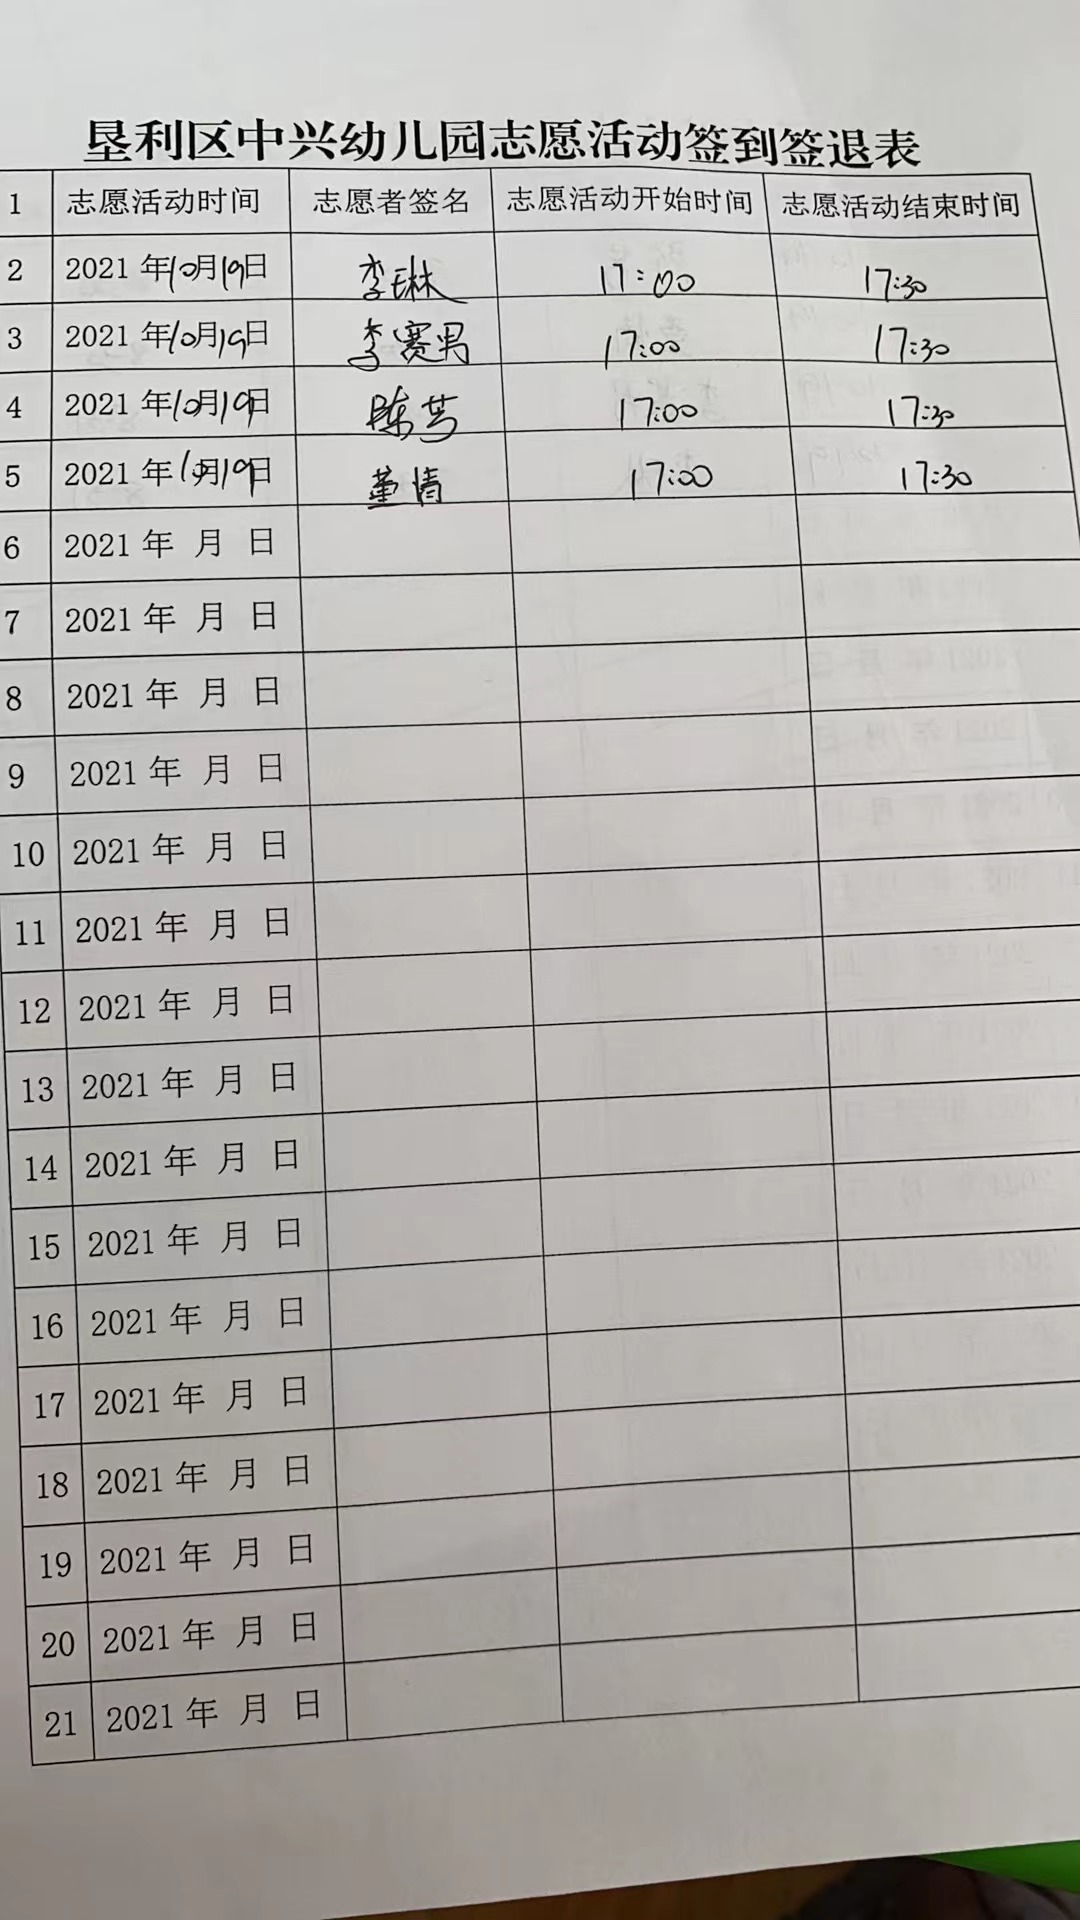 垦利区中兴幼儿园志愿活动签到签退表
1 志愿活动时间 志愿者签名 志愿活动开始时间 志愿活动结束时间
2 2021年10月19日 李琳 17:00 17:30
3 2021年10月19日 李赛男 17:00 17:30
4 2021年10月19日 陈芳 17:00 17:30
5 2021年10月19日 董情 17:00 17:30
6 2021年 月 日
7 2021年 月 日
8 2021年 月 日
9 2021年 月 日
10 2021年 月 日
11 2021年 月 日
12 2021年 月 日
13 2021年 月 日
14 2021年 月 日
15 2021年 月 日
16 2021年 月 日
17 2021年 月 日
18 2021年 月 日
19 2021年 月 日
20 2021年 月 日
21 2021年 月 日